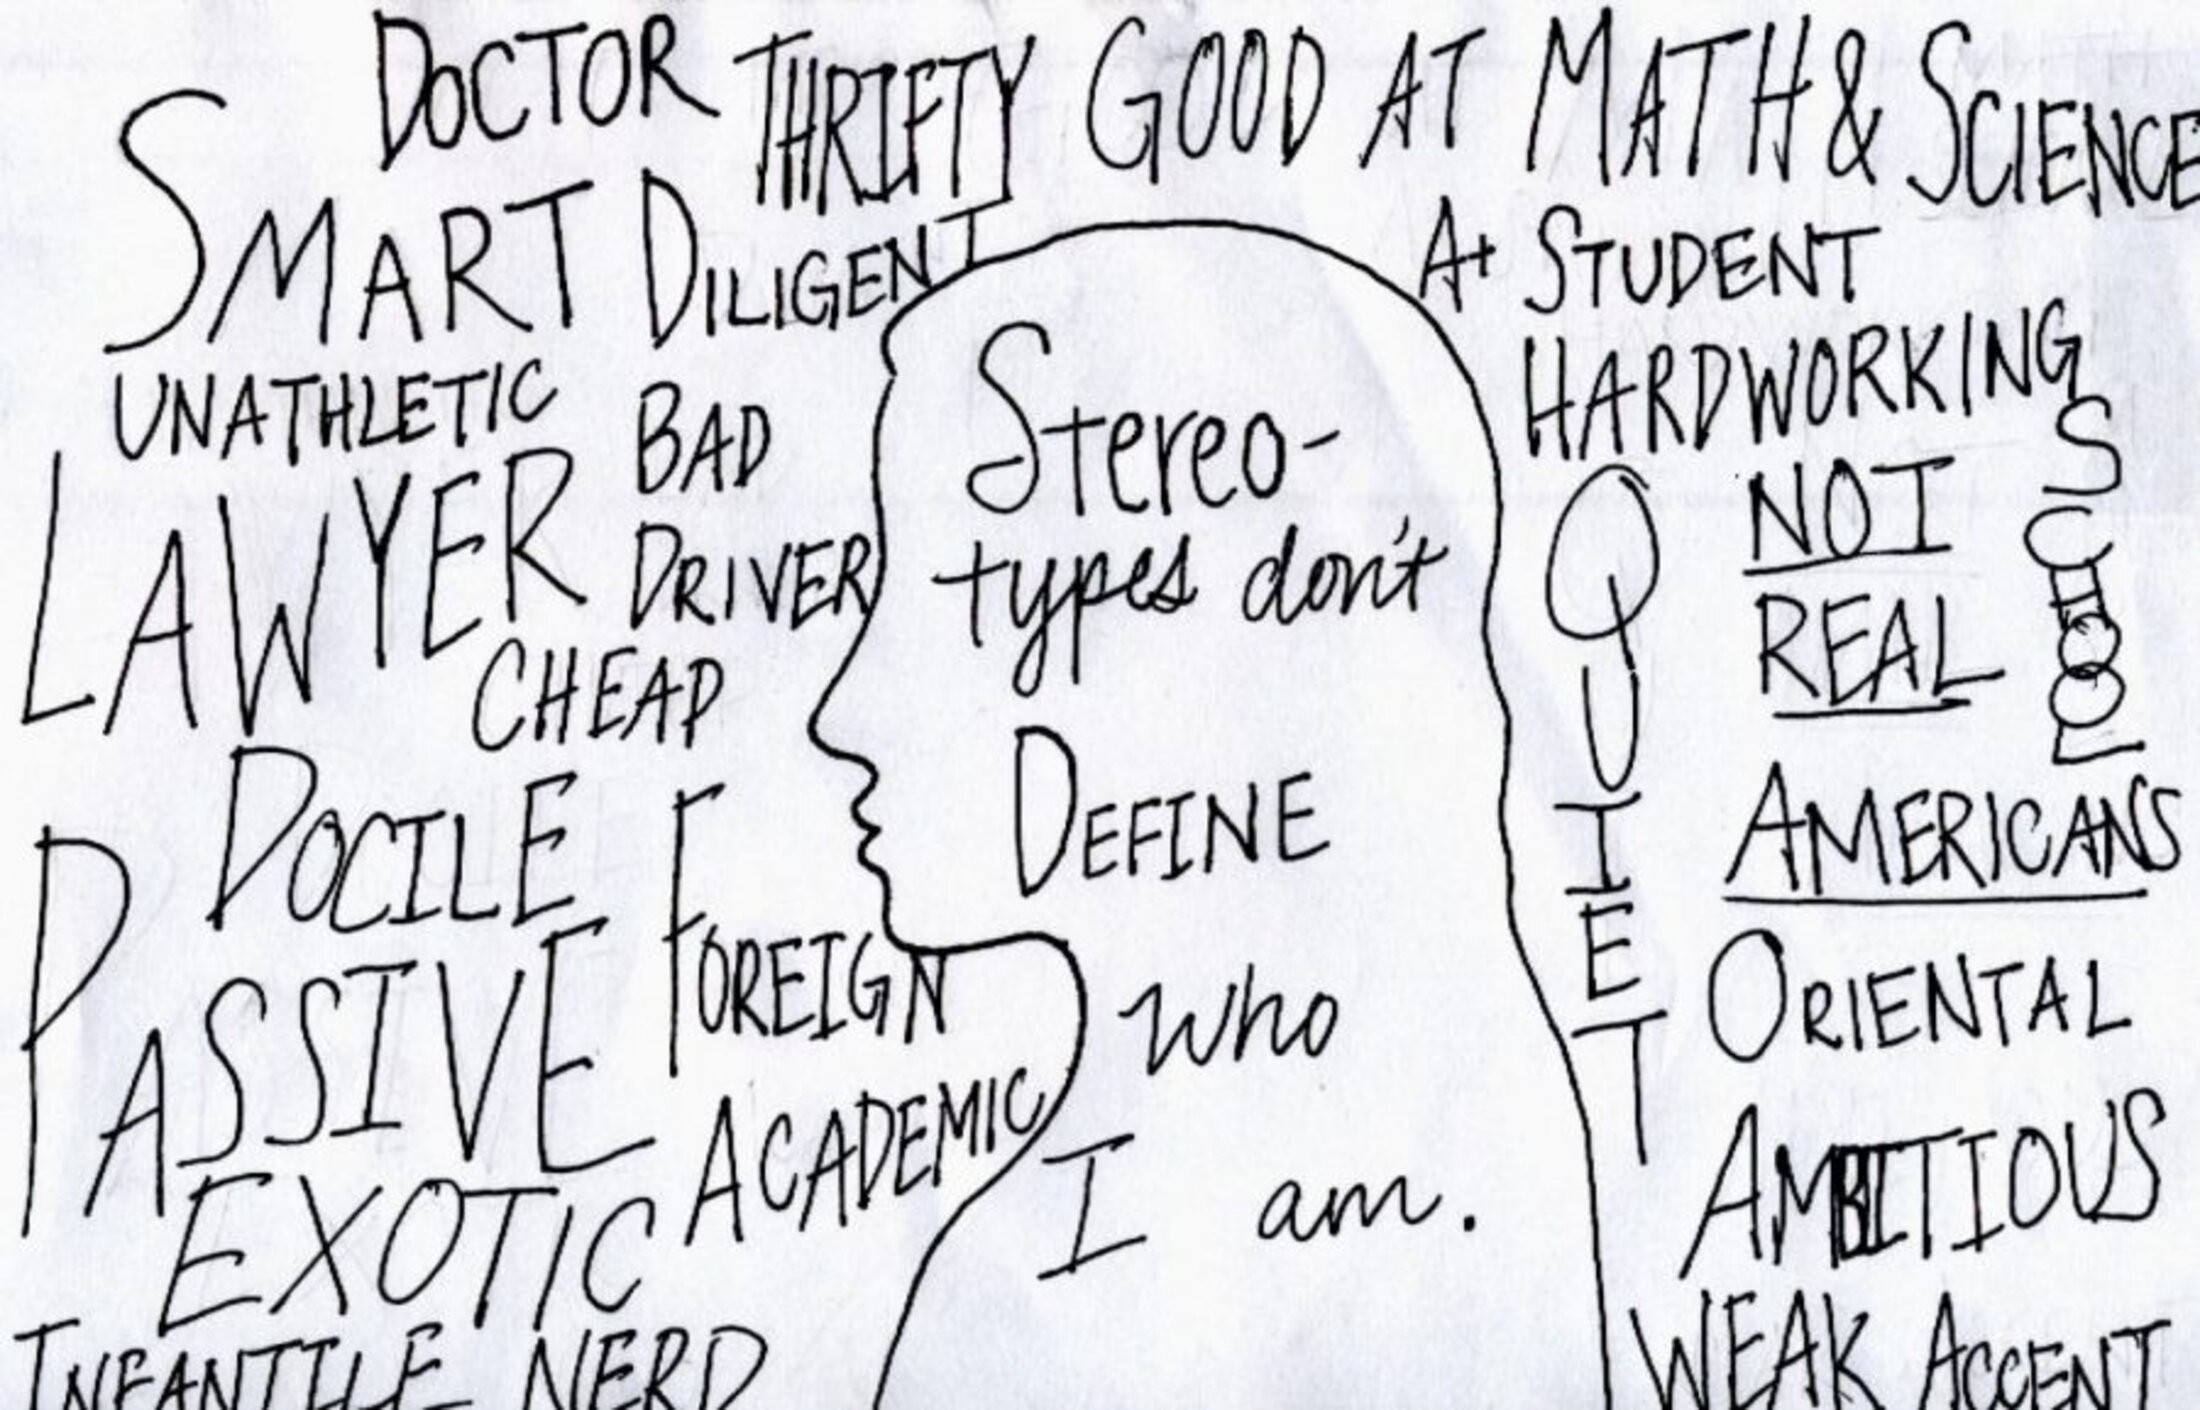 DOCTOR THRIFTY GOOD AT MATH & SCIENCE
SMART DILIGENT
A+ STUDENT
UNATHLETIC
BAD
DRIVER
HARDWORKING
LAWYER
CHEAP
Stereo-
types don't
DEFINE
who
I am.
QUIET
NOT
REAL
AMERICANS
SCHOOL
DOCILE
FOREIGN
PASSIVE
ACADEMIC
ORIENTAL
AMBITIOUS
EXOTIC
INFANTILE NERD
WEAK ACCENT